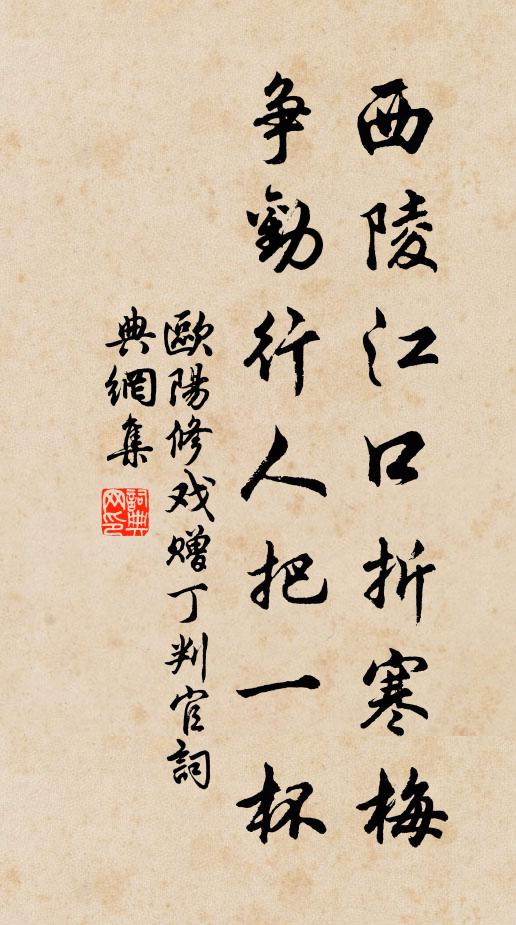 西陵江口折寒梅
争勸行人把一杯
歐陽修戏赠丁判官詞
典網集
詞典网印